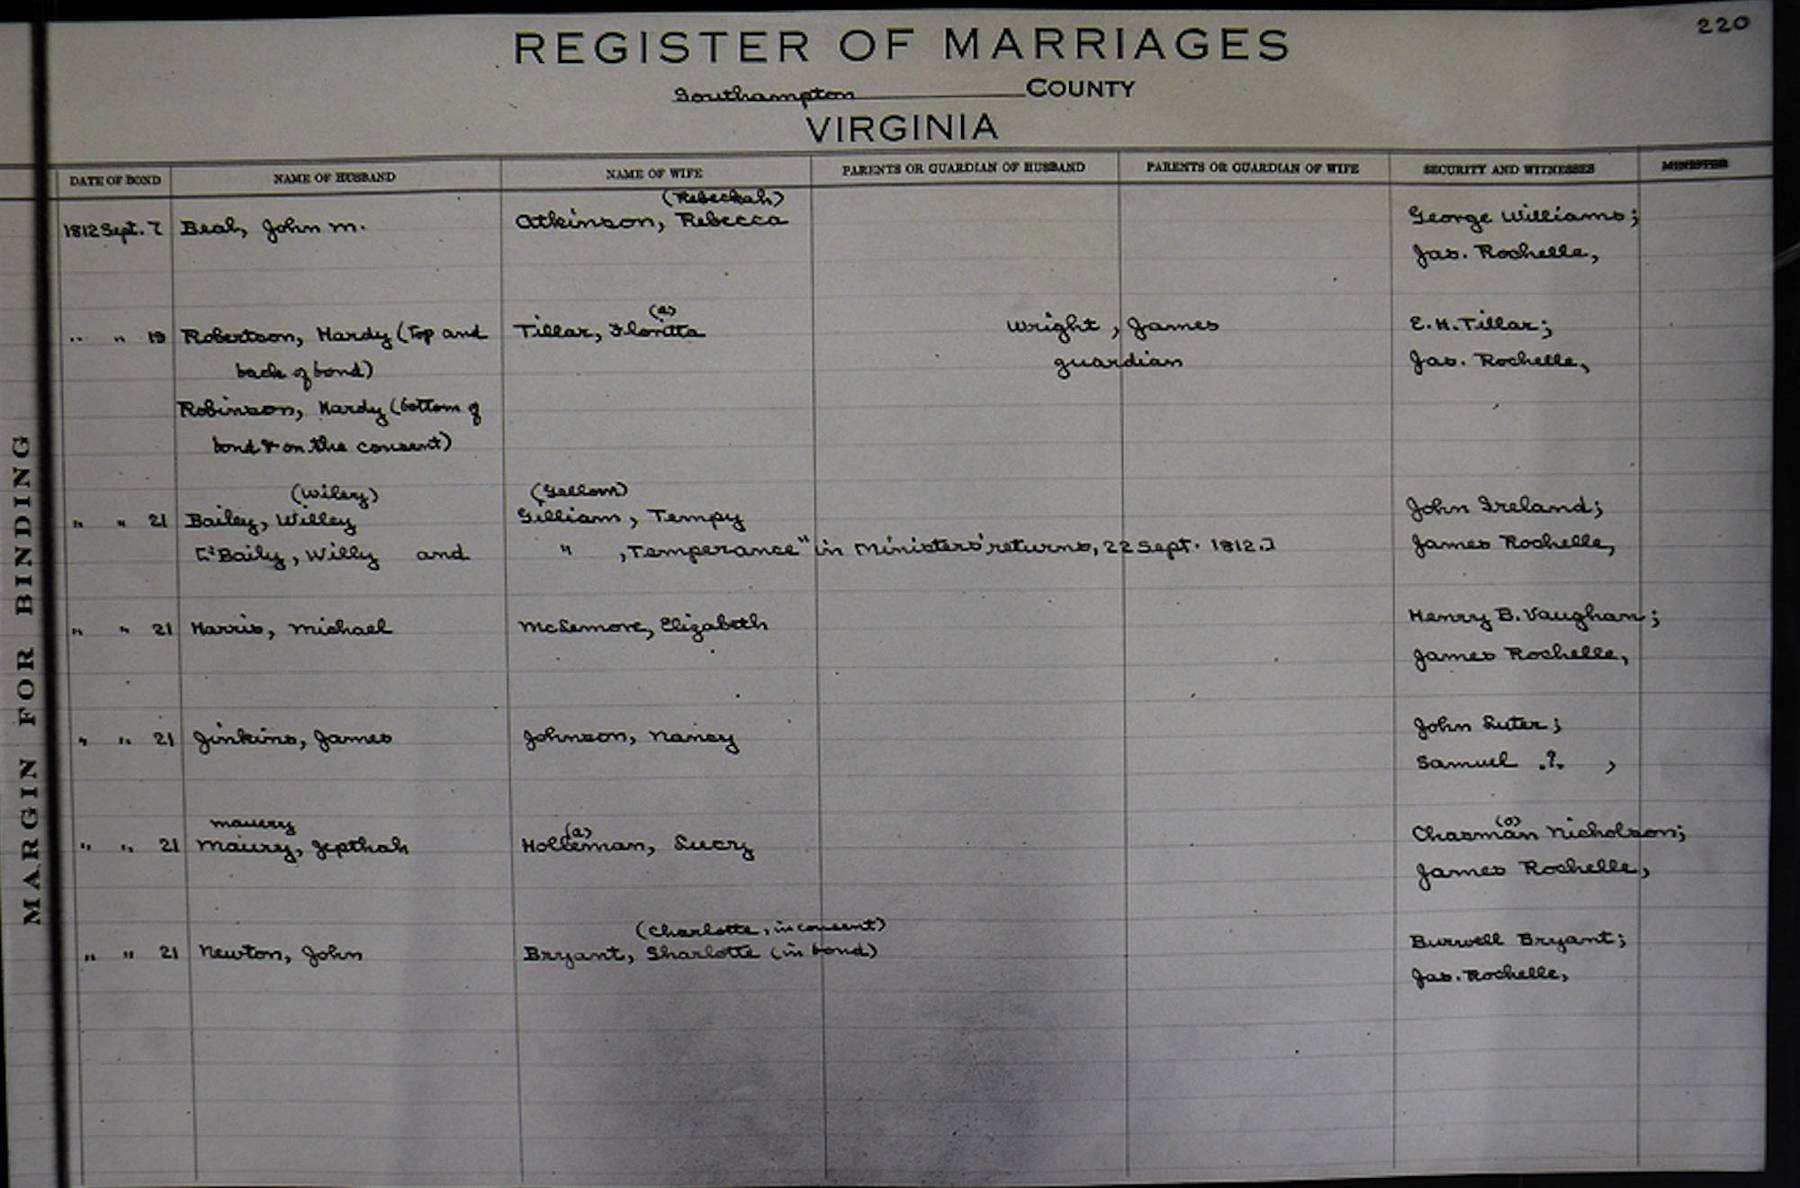 220
REGISTER OF MARRIAGES
Southampton COUNTY
VIRGINIA
DATE OF BOND NAME OF HUSBAND NAME OF WIFE PARENTS OR GUARDIAN OF HUSBAND PARENTS OR GUARDIAN OF WIFE SECURITY AND WITNESSES MINISTER
(Rebeckah)
1812 Sept. 7 Beal, John M. Atkinson, Rebecca George Williams;
Jas. Rochelle,
(a)
" " 19 Robertson, Hardy (top and Tillar, Floritta Wright, James E. H. Tillar;
back of bond) guardian Jas. Rochelle,
Robinson, Hardy (bottom of
bond & on the consent)
(Wiley) (Gellom)
" " 21 Bailey, Willey Gilliam, Tempy John Ireland;
["Baily, Willy and " , Temperance" in Ministers' returns, 22 Sept. 1812.] James Rochelle,
" " 21 Harris, Michael McLemore, Elizabeth Henry B. Vaughan;
James Rochelle,
" " 21 Jinkins, James Johnson, Nancy John Luter;
Samuel .?. ,
mauery (a) (o)
" " 21 Maury, Jepthah Holleman, Lucry Chasman Nicholson;
James Rochelle,
(Charlotte, in consent)
" " 21 Newton, John Bryant, Sharlotte (in bond) Burwell Bryant;
Jas. Rochelle,
MARGIN FOR BINDING